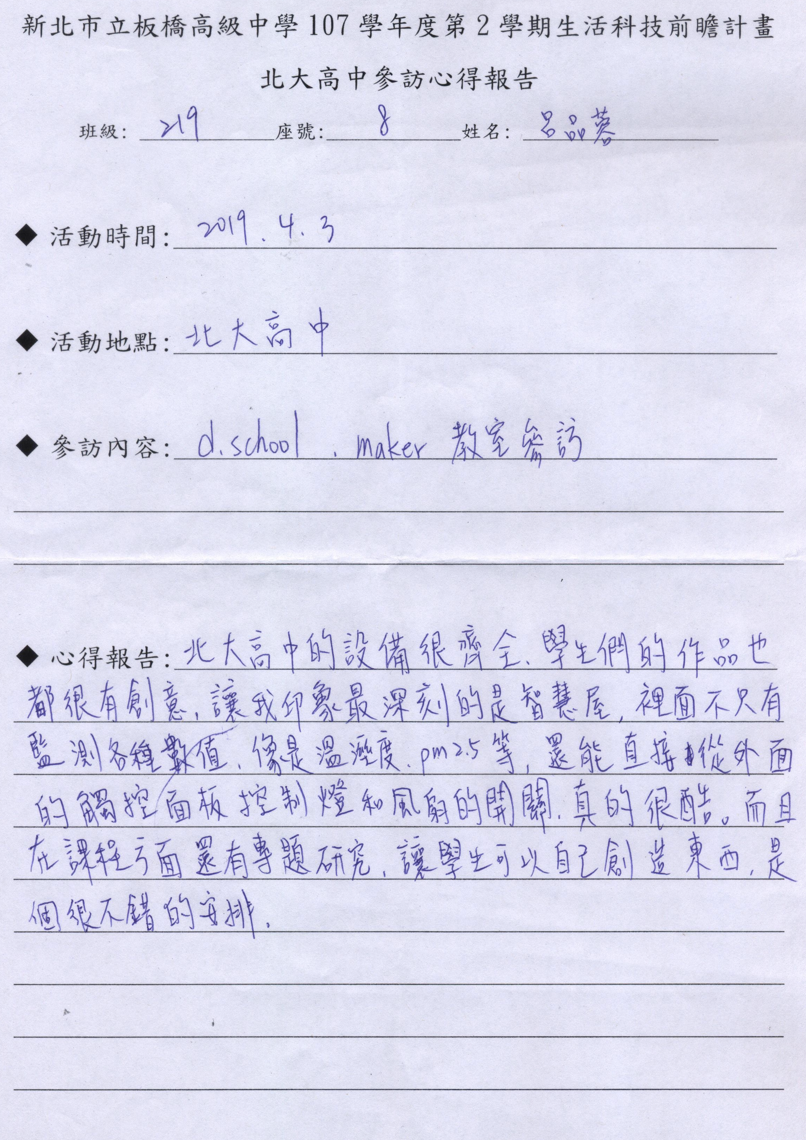 新北市立板橋高級中學 107 學年度第 2 學期生活科技前瞻計畫
北大高中參訪心得報告
班級: 219 座號: 8 姓名: 呂品蓉
◆ 活動時間: 2019. 4. 3
◆ 活動地點: 北大高中
◆ 參訪內容: d.school 、maker 教室參訪
◆ 心得報告: 北大高中的設備很齊全、學生們的作品也
都很有創意,讓我印象最深刻的是智慧屋,裡面不只有
監測各種數值,像是溫溼度、pm2.5等,還能直接從外面
的觸控面板控制燈和風扇的開關,真的很酷。而且
在課程方面還有專題研究,讓學生可以自己創造東西,是
個很不錯的安排.